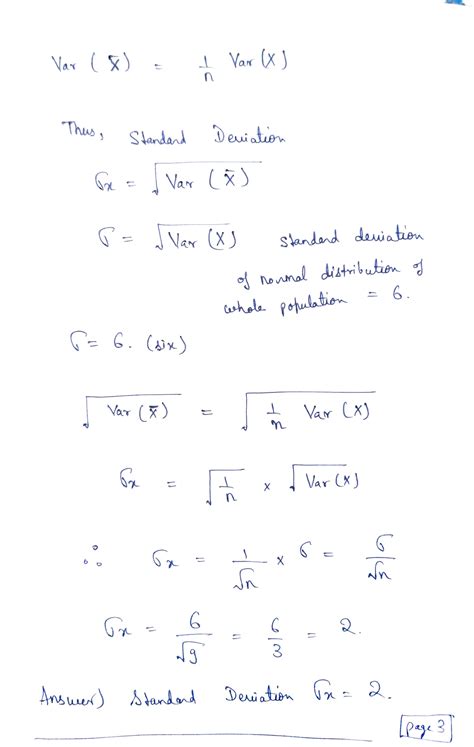 Var ( X̄ ) = 1/n Var (X)
Thus, Standard Deviation
σx = √Var ( X̄ )
σ = √Var (X) standard deviation
of normal distribution of
whole population = 6.
σ = 6. (six)
√Var ( X̄ ) = √1/n Var (X)
σx = √1/n × √Var (X)
∴ σx = 1/√n × σ = σ/√n
σx = 6/√9 = 6/3 = 2.
Answer) Standard Deviation σx = 2.
page 3